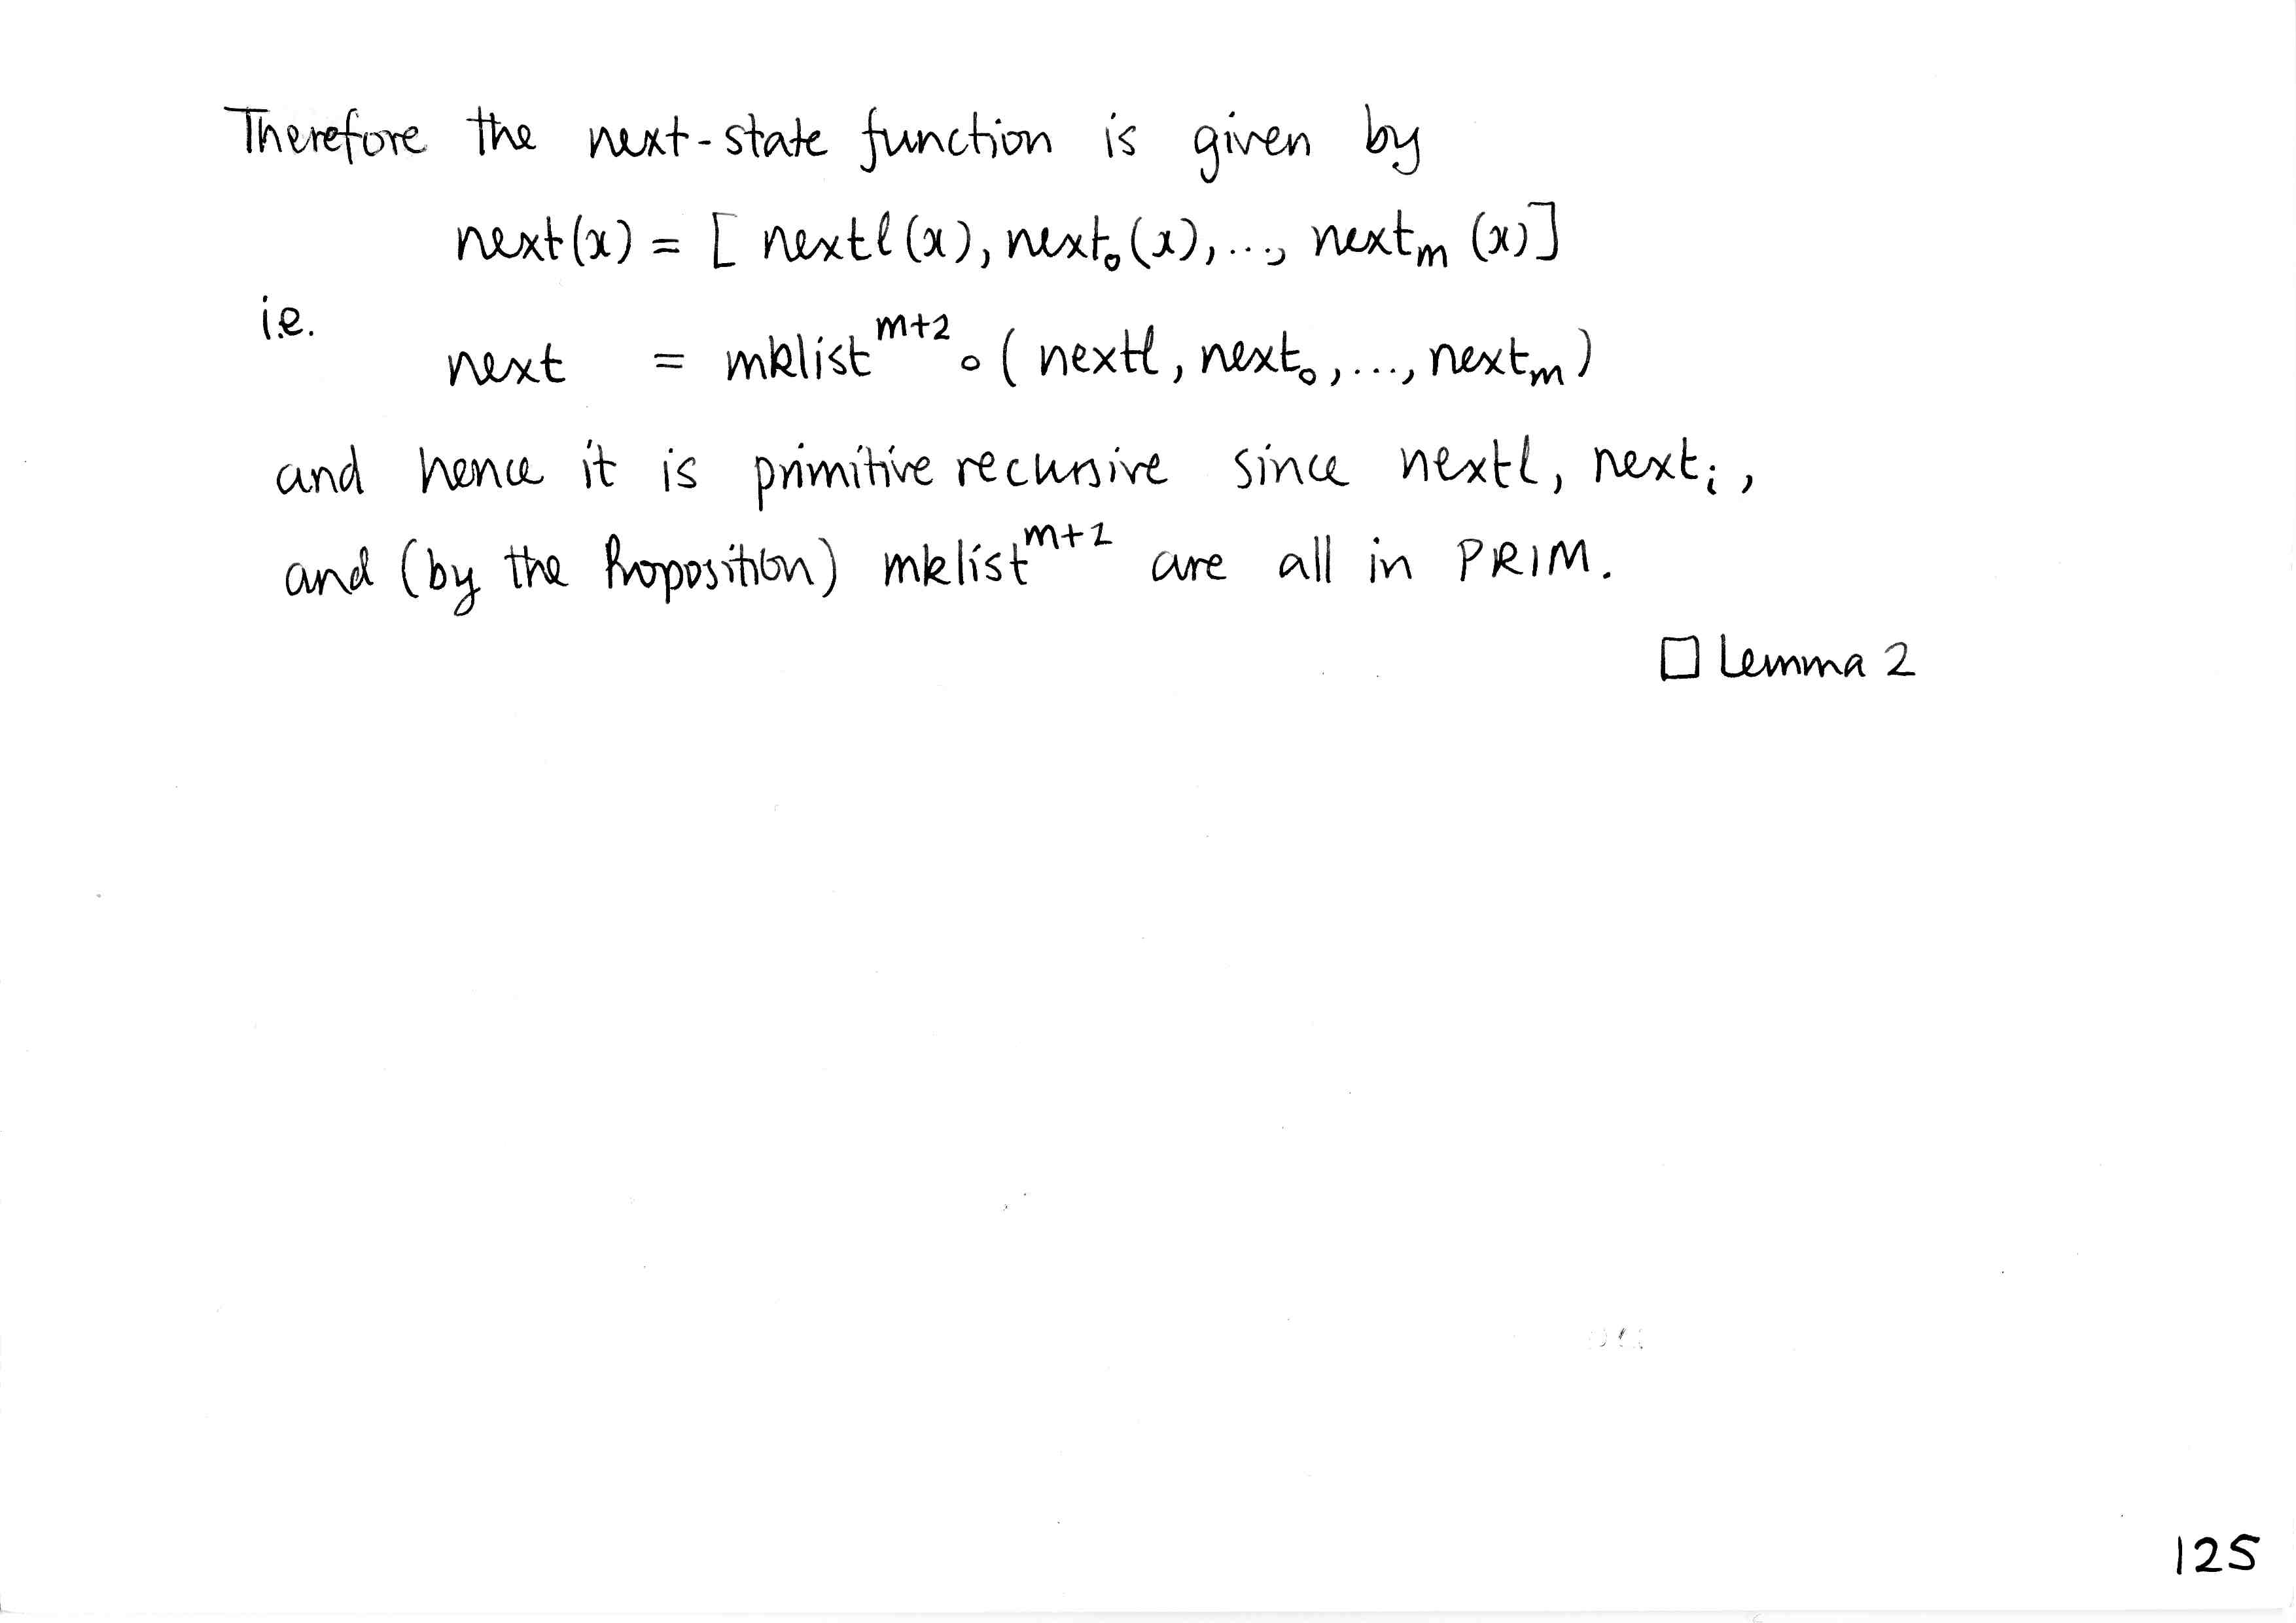 Therefore the next-state function is given by
next(x) = [ nextl(x), next₀(x), ..., nextₘ(x)]
i.e.
next = mklist^{m+2} ∘ ( nextl, next₀, ..., nextₘ)
and hence it is primitive recursive since nextl, nextᵢ,
and (by the Proposition) mklist^{m+2} are all in PRIM.
□ Lemma 2
125